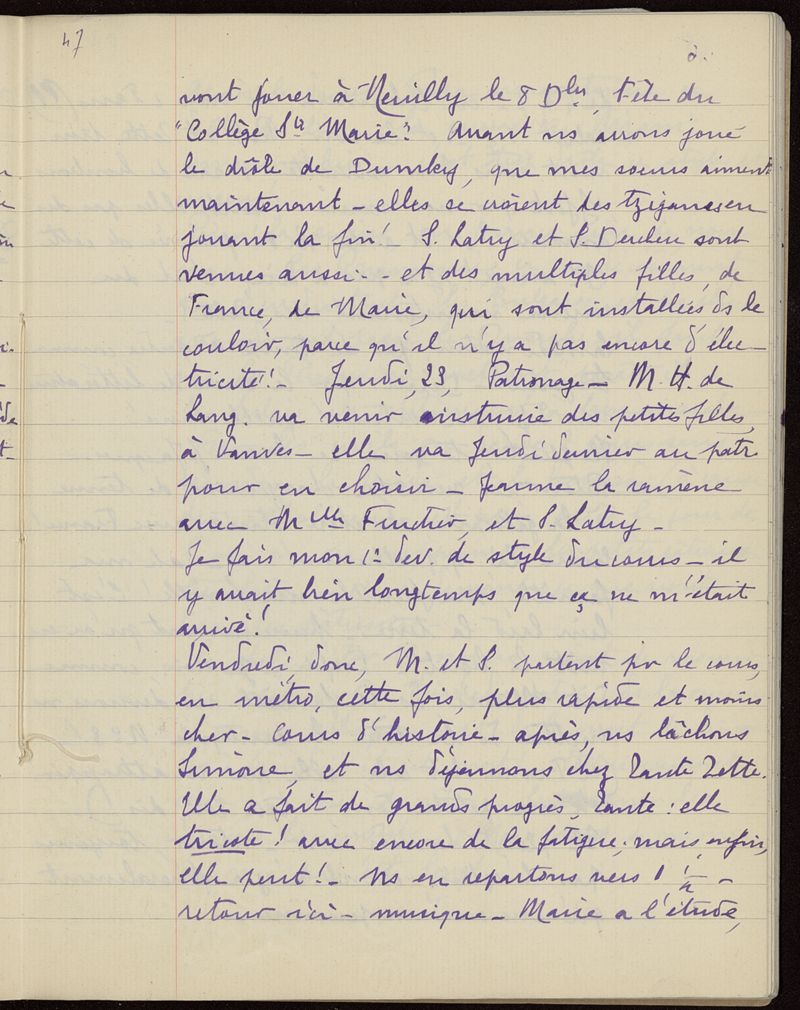 47
vont jouer à Neuilly le 8 Dbre, Fête du
"Collège Ste Marie". Avant ns avons joué
le drôle de Dumky, que mes soeurs aiment
maintenant - elles se croient des tziganes en
jouant la fin! - S. Latry et S. sont
venues aussi - - et des multiples filles, de
France, de Marie, qui sont installées ds le
couloir, parce qu'il n'y a pas encore d'élec-
tricité! - Jeudi, 23, Patronage - M. H. de
Lang. va venir instruire des petites filles,
à Vanves - elle va Jeudi dernier au patr.
pour en choisir - Jeanne la ramène
avec Melle et S. Latry -
Je fais mon 1er dev. de style du cours - il
y avait bien longtemps que ça ne m'était
arrivé!
Vendredi, donc, M. et S. partent pr le cours,
en métro, cette fois, plus rapide et moins
cher - cours d'histoire - après, ns lâchons
Simone, et ns déjeunons chez Tante Zette.
Elle a fait de grands progrès, Tante : elle
tricote ! avec encore de la fatigue, mais enfin,
elle peut! - Ns en repartons vers 1 1/2 -
retour ici - musique - Marie a l'étude,